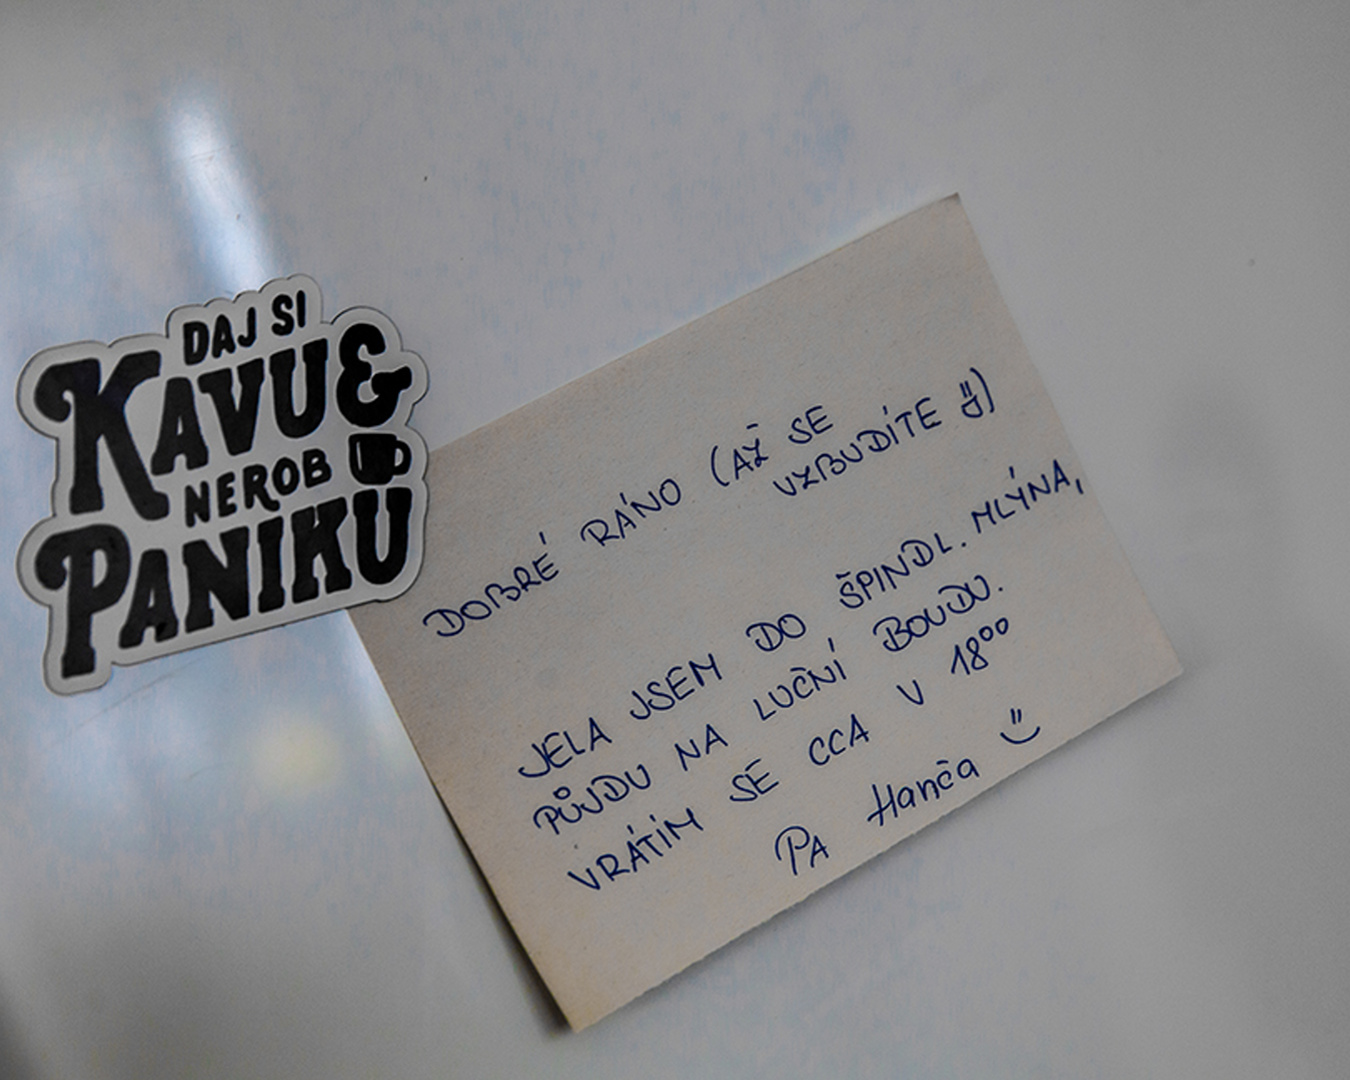 DAJ SI
KAVU &
NEROB
PANIKU
DOBRÉ RÁNO (AŽ SE
VZBUDÍTE :D)
JELA JSEM DO ŠPINDL. MLÝNA,
PŮJDU NA LUČNÍ BOUDU.
VRÁTÍM SE CCA V 18⁰⁰
PA Hanča :)